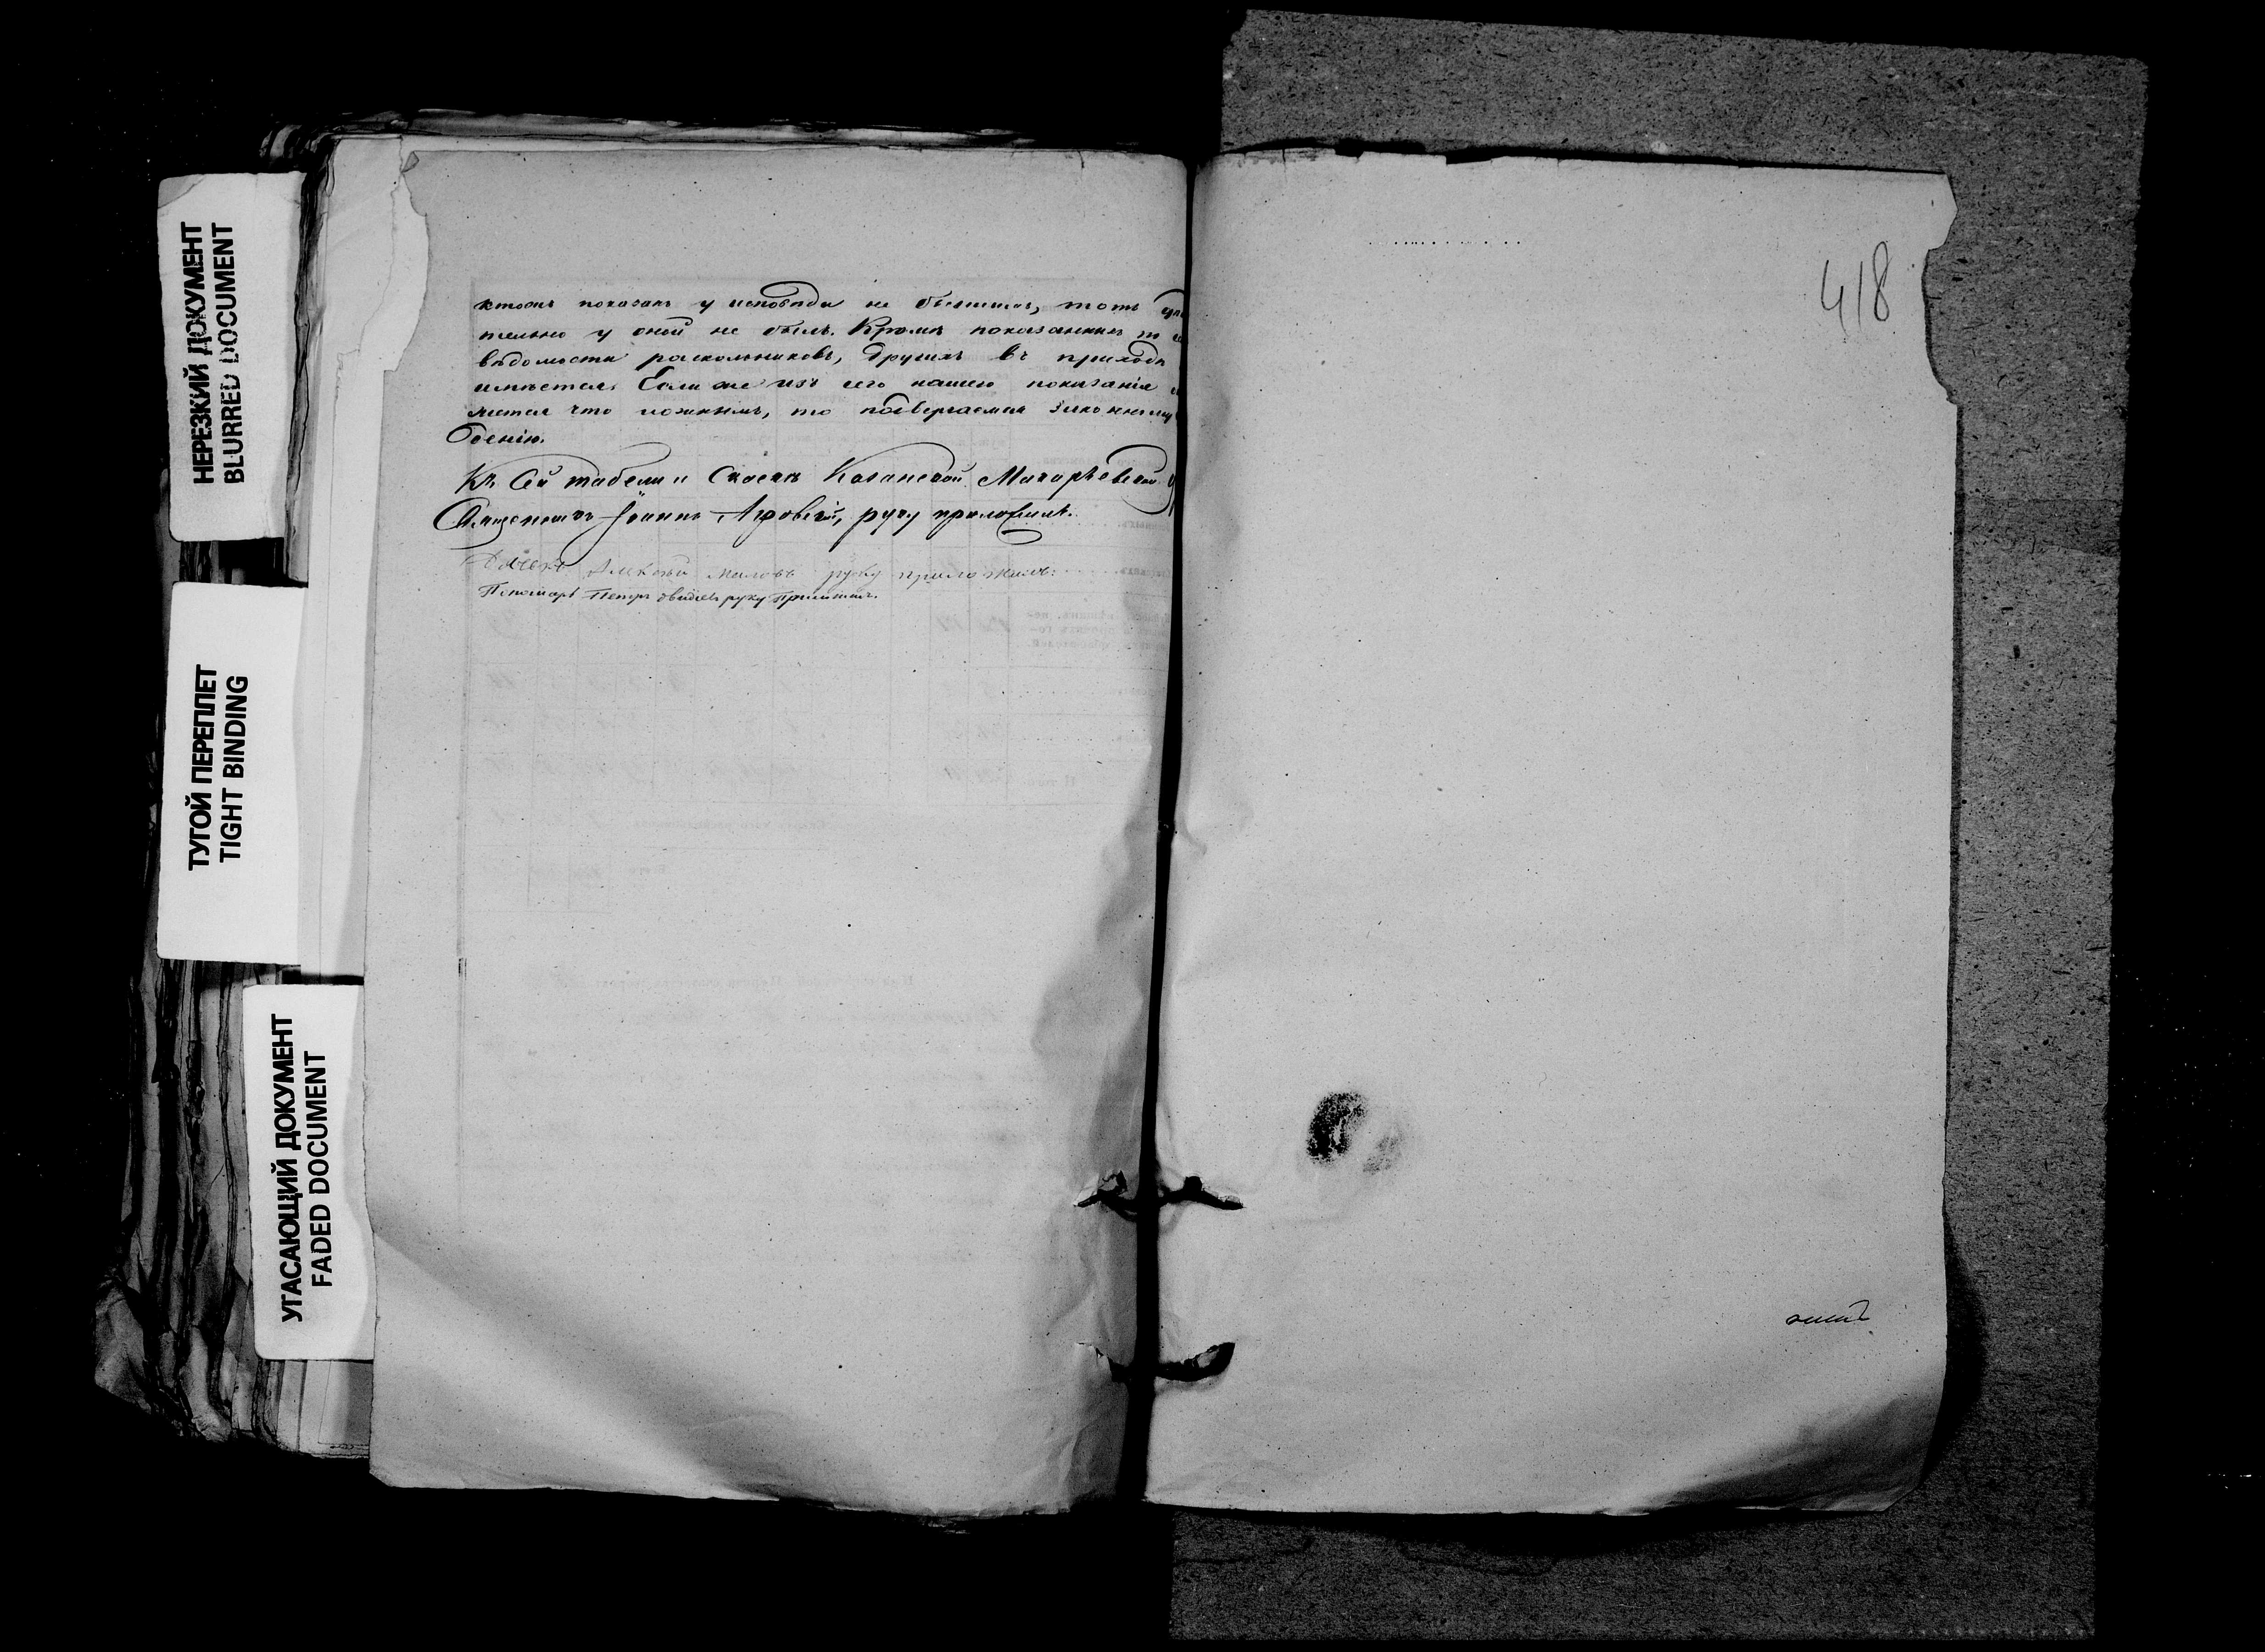 НЕРЕЗКИЙ ДОКУМЕНТ
BLURRED DOCUMENT
ТУГОЙ ПЕРЕПЛЕТ
TIGHT BINDING
УГАСАЮЩИЙ ДОКУМЕНТ
FADED DOCUMENT
показанъ у исповѣди не бывшимъ, тотъ
тельно у оной не былъ. Кромѣ показанныхъ
вѣдомости раскольниковъ, другихъ въ приходѣ
имѣется. Если же изъ сего нашего показанія
жется что ложнымъ, то подвергаемся законному
денію.
Къ сей табели и Казанской Макарьевской
Священникъ Іоаннъ руку приложилъ.
Алексѣй руку приложилъ.
Пономарь Петръ руку приложилъ.
418